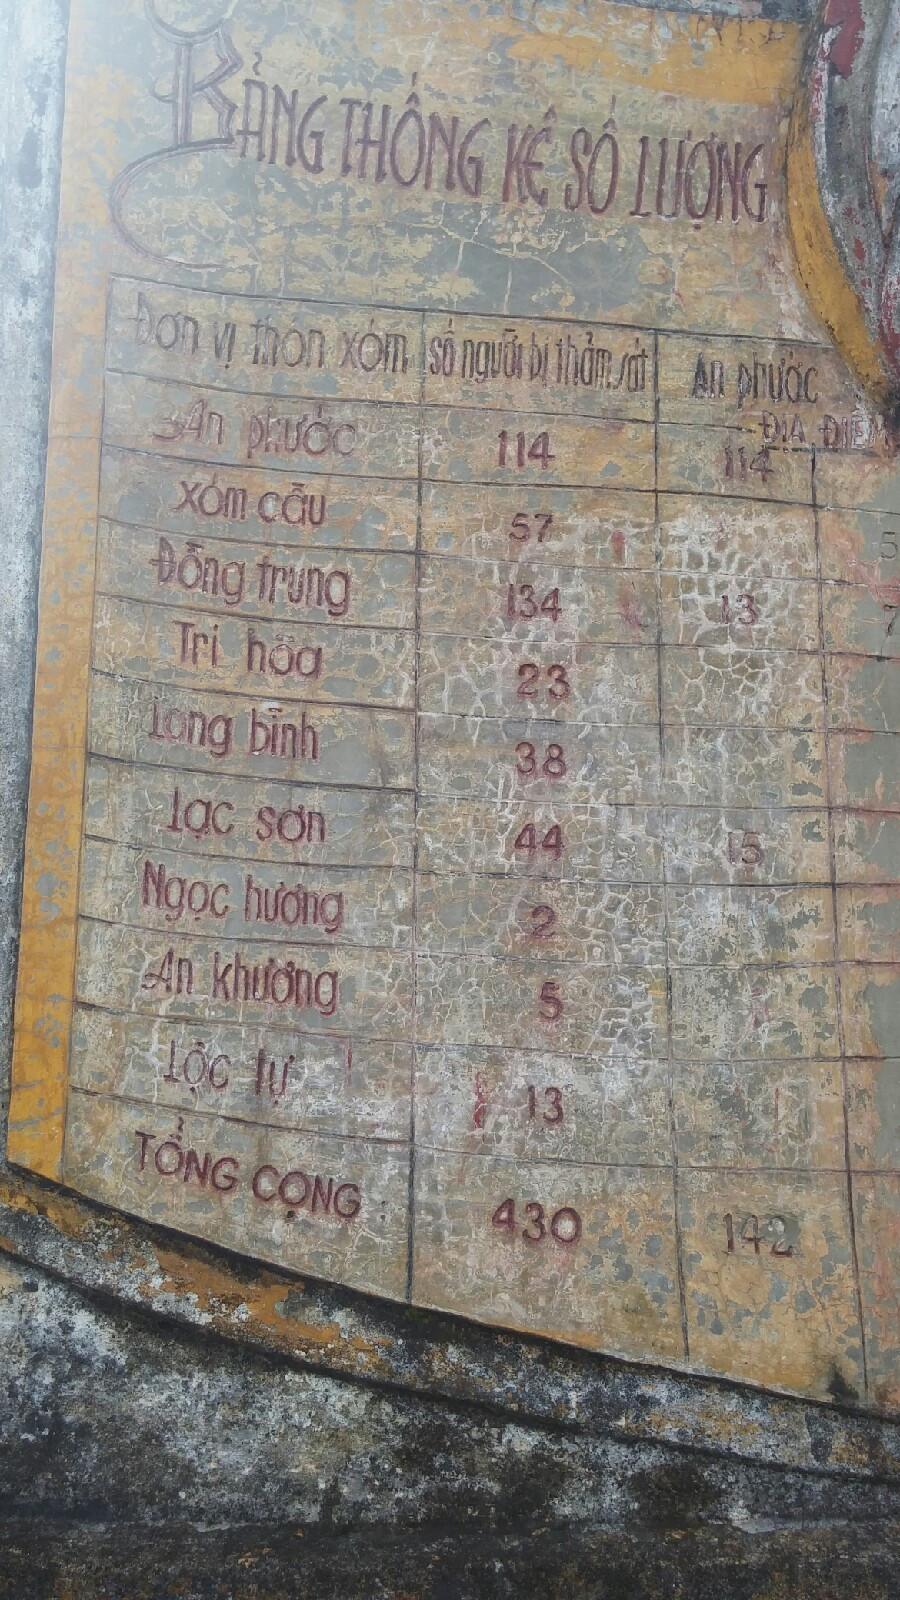 BẢNG THỐNG KÊ SỐ LƯỢNG
Đơn vị thôn xóm số người bị thảm sát An phước
ĐỊA ĐIỂM
An phước 114 114
xóm cầu 57 5
Đồng trung 134 13 7
Tri hòa 23
Long bình 38
Lạc sơn 44 15
Ngọc hương 2
An khương 5
Lộc tự 13
TỔNG CỘNG : 430 142